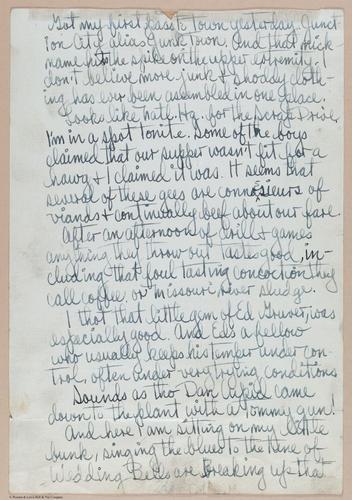 Got my first pass to town yesterday, Junct
ion City alias Junk Town. And that nick-
name hits the spike on the upper extremity. I
don't believe more junk & shoddy cloth-
ing has ever been assembled in one place.
Looks like natl. Hq. for the scrap Drive.
I'm in a spot tonite. Some of the boys
claimed that our supper wasn't fit for a
hawg & I claimed it was. It seems that
several of these gees are connosieurs of
viands & continually beef about our fare.
After an afternoon of drill & games
anything they throw our tastes good, in-
cluding that foul tasting concoction they
call coffee, or Missouri River sludge.
I thot that little gem of Ed was
especially good. And Eds a fellow
who usually keeps his temper under con-
trol, often under very trying conditions
Sounds as tho Dan Cupid came
down to the plant with a tommy gun!
And here I am sitting on my little
bunk, singing the blues to the tune of
Wedding Bells are Breaking up that